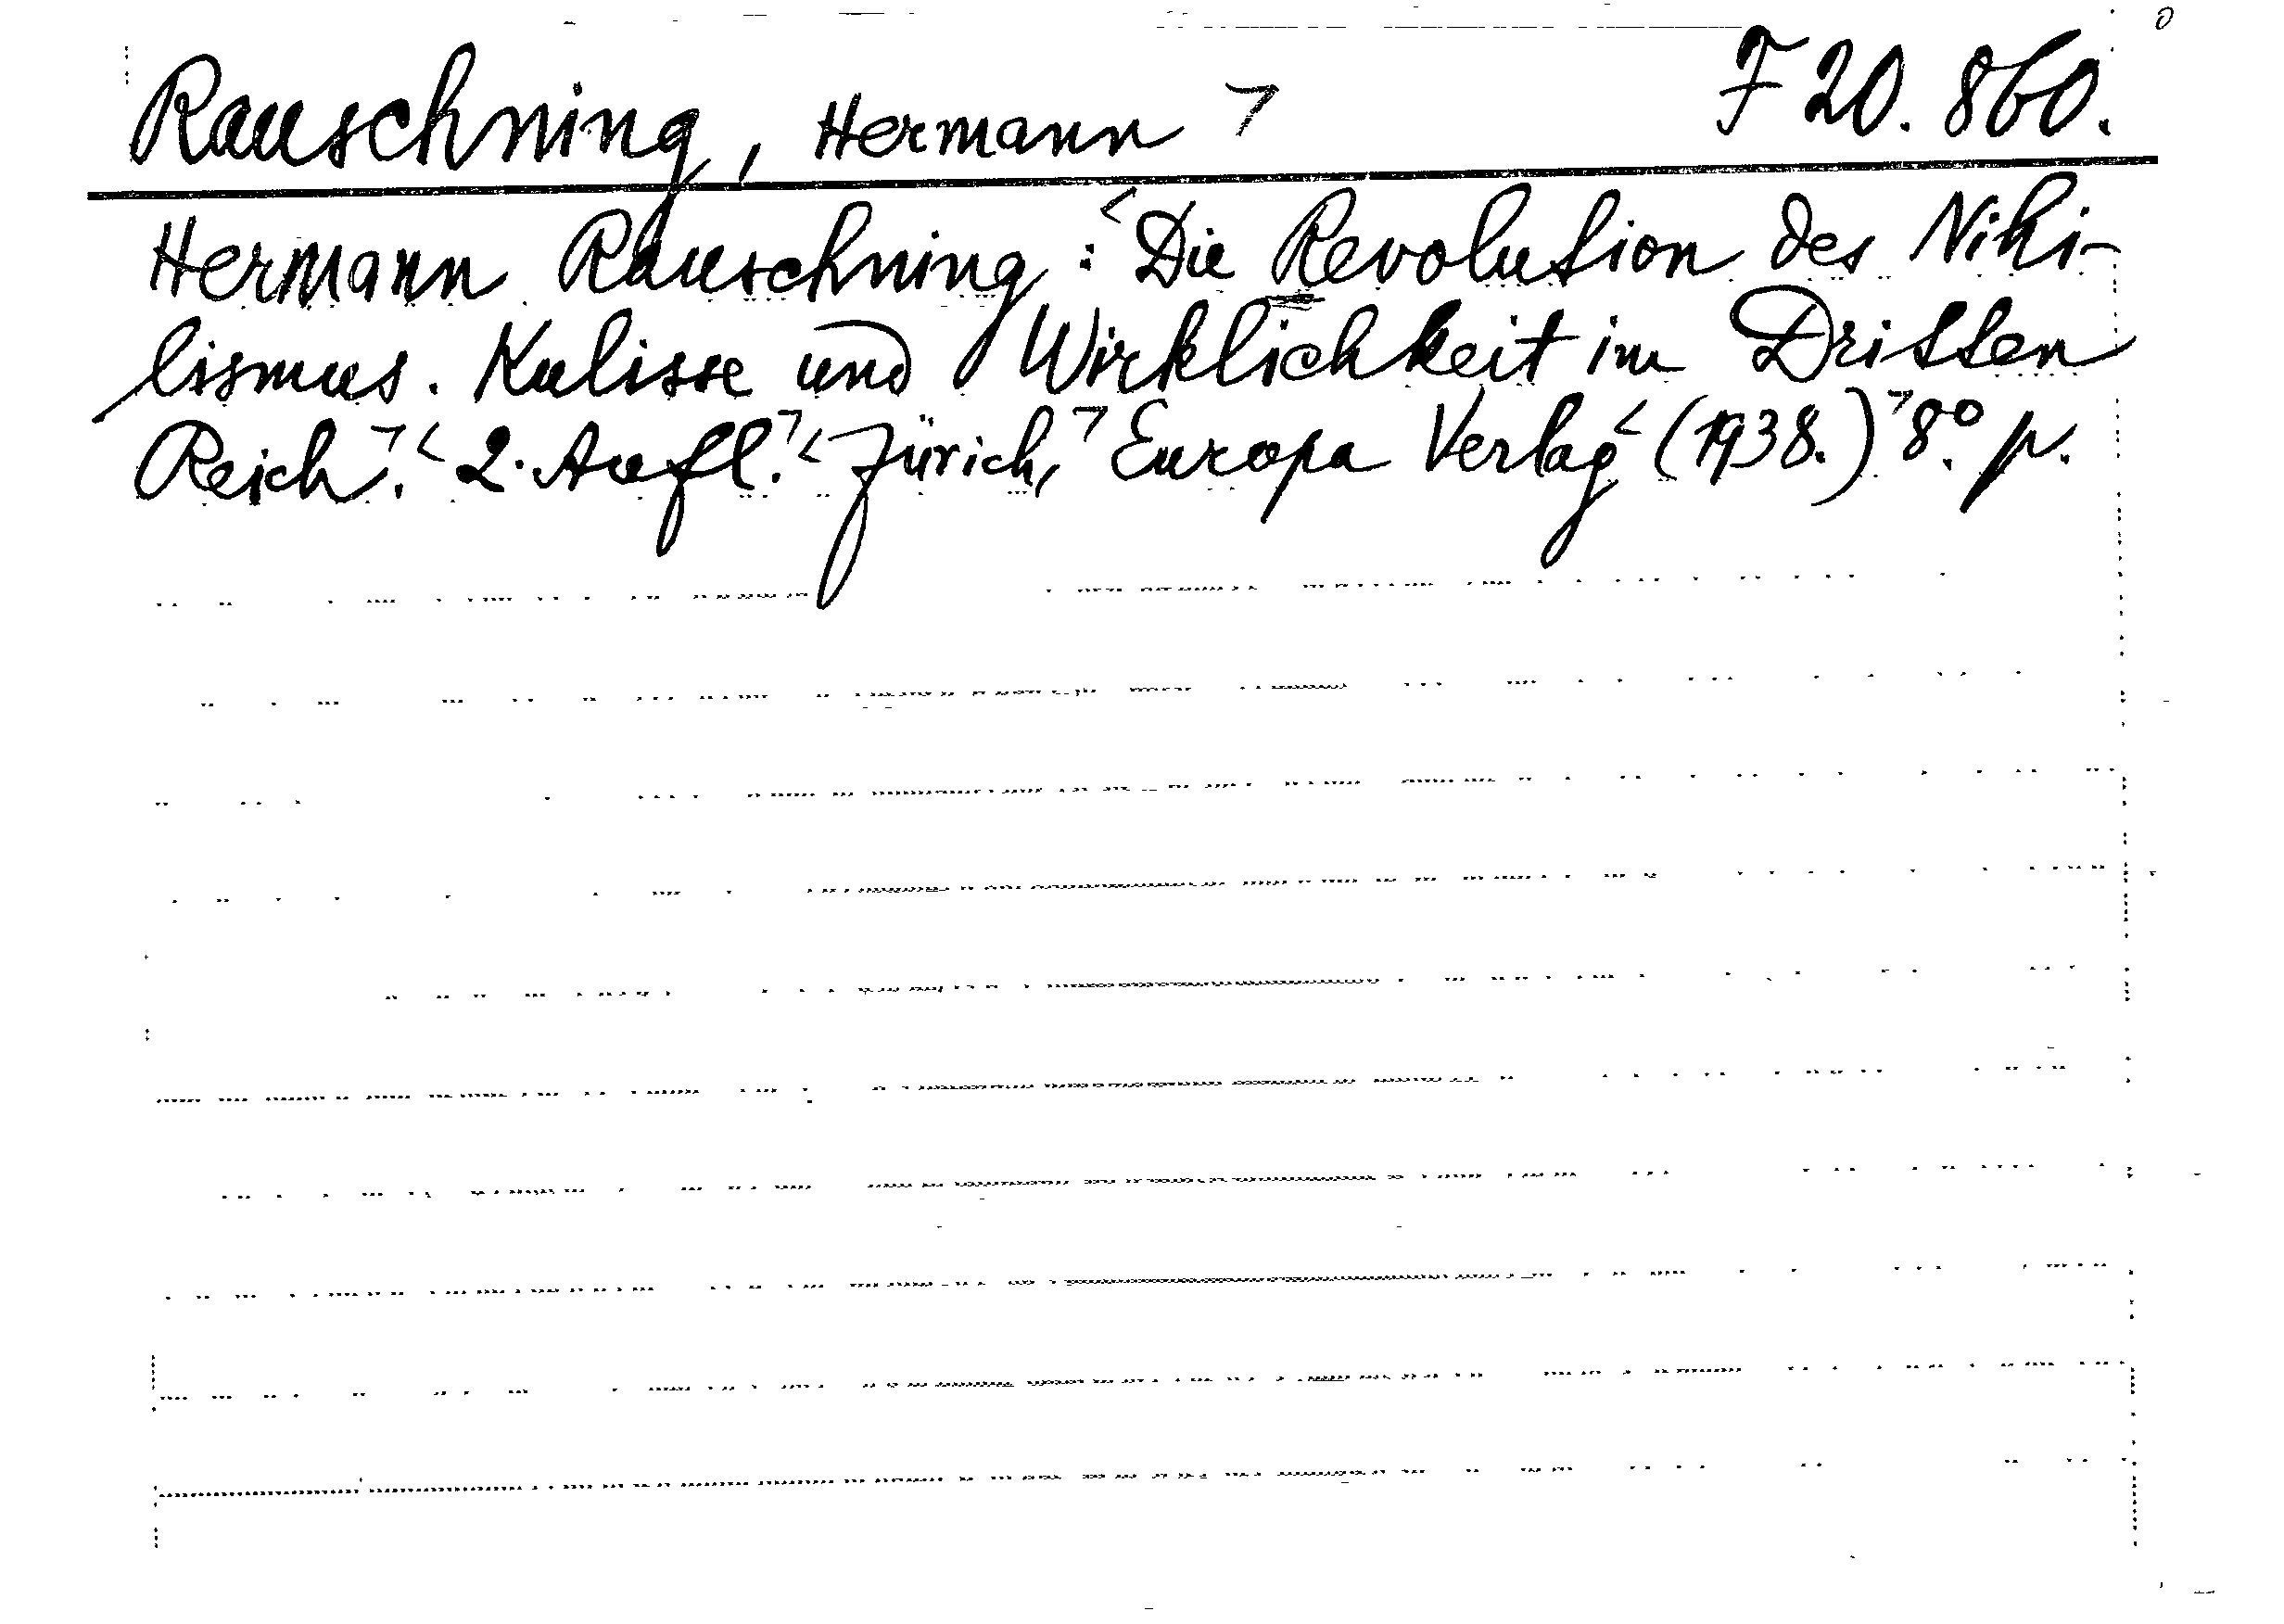 Rauschning, Hermann ﹁ F 20.860.
Hermann Rauschning: <Die Revolution des Nihi-
lismus. Kulisse und Wirklichkeit im Dritten
Reich﹁.< 2. Aufl.﹁< Zürich,﹁ Europa Verlag< (1938.)﹁ 8°. p.